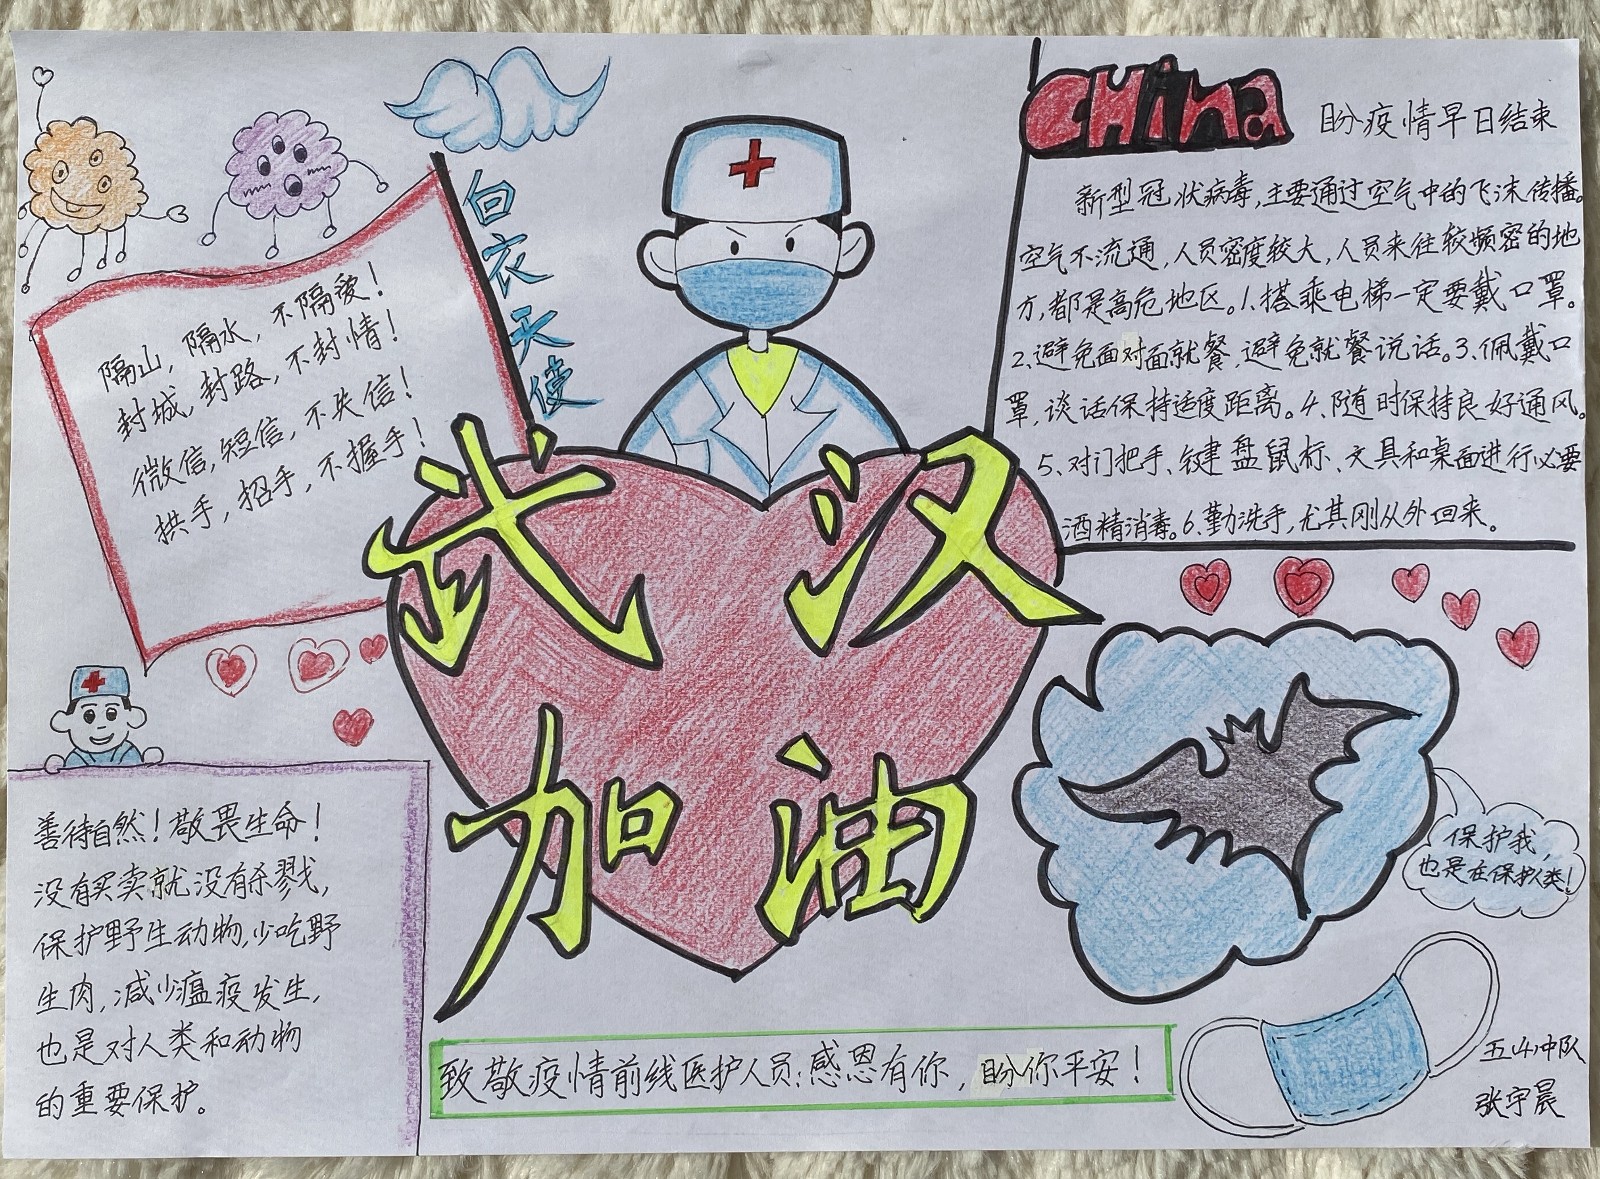 白衣天使
隔山，隔水，不隔爱！
封城，封路，不封情！
微信，短信，不失信！
拱手，招手，不握手！
CHina
盼疫情早日结束
新型冠状病毒，主要通过空气中的飞沫传播。
空气不流通，人员密度较大，人员来往较频密的地
方，都是高危地区。1、搭乘电梯一定要戴口罩。
2、避免面对面就餐，避免就餐说话。3、佩戴口
罩，谈话保持适度距离。4、随时保持良好通风。
5、对门把手、键盘鼠标、文具和桌面进行必要
酒精消毒。6、勤洗手，尤其刚从外回来。
武汉
加油
善待自然！敬畏生命！
没有买卖就没有杀戮，
保护野生动物，少吃野
生肉，减少瘟疫发生，
也是对人类和动物
的重要保护。
保护我，
也是在保护人类！
致敬疫情前线医护人员：感恩有你，盼你平安！
五4中队
张宇晨